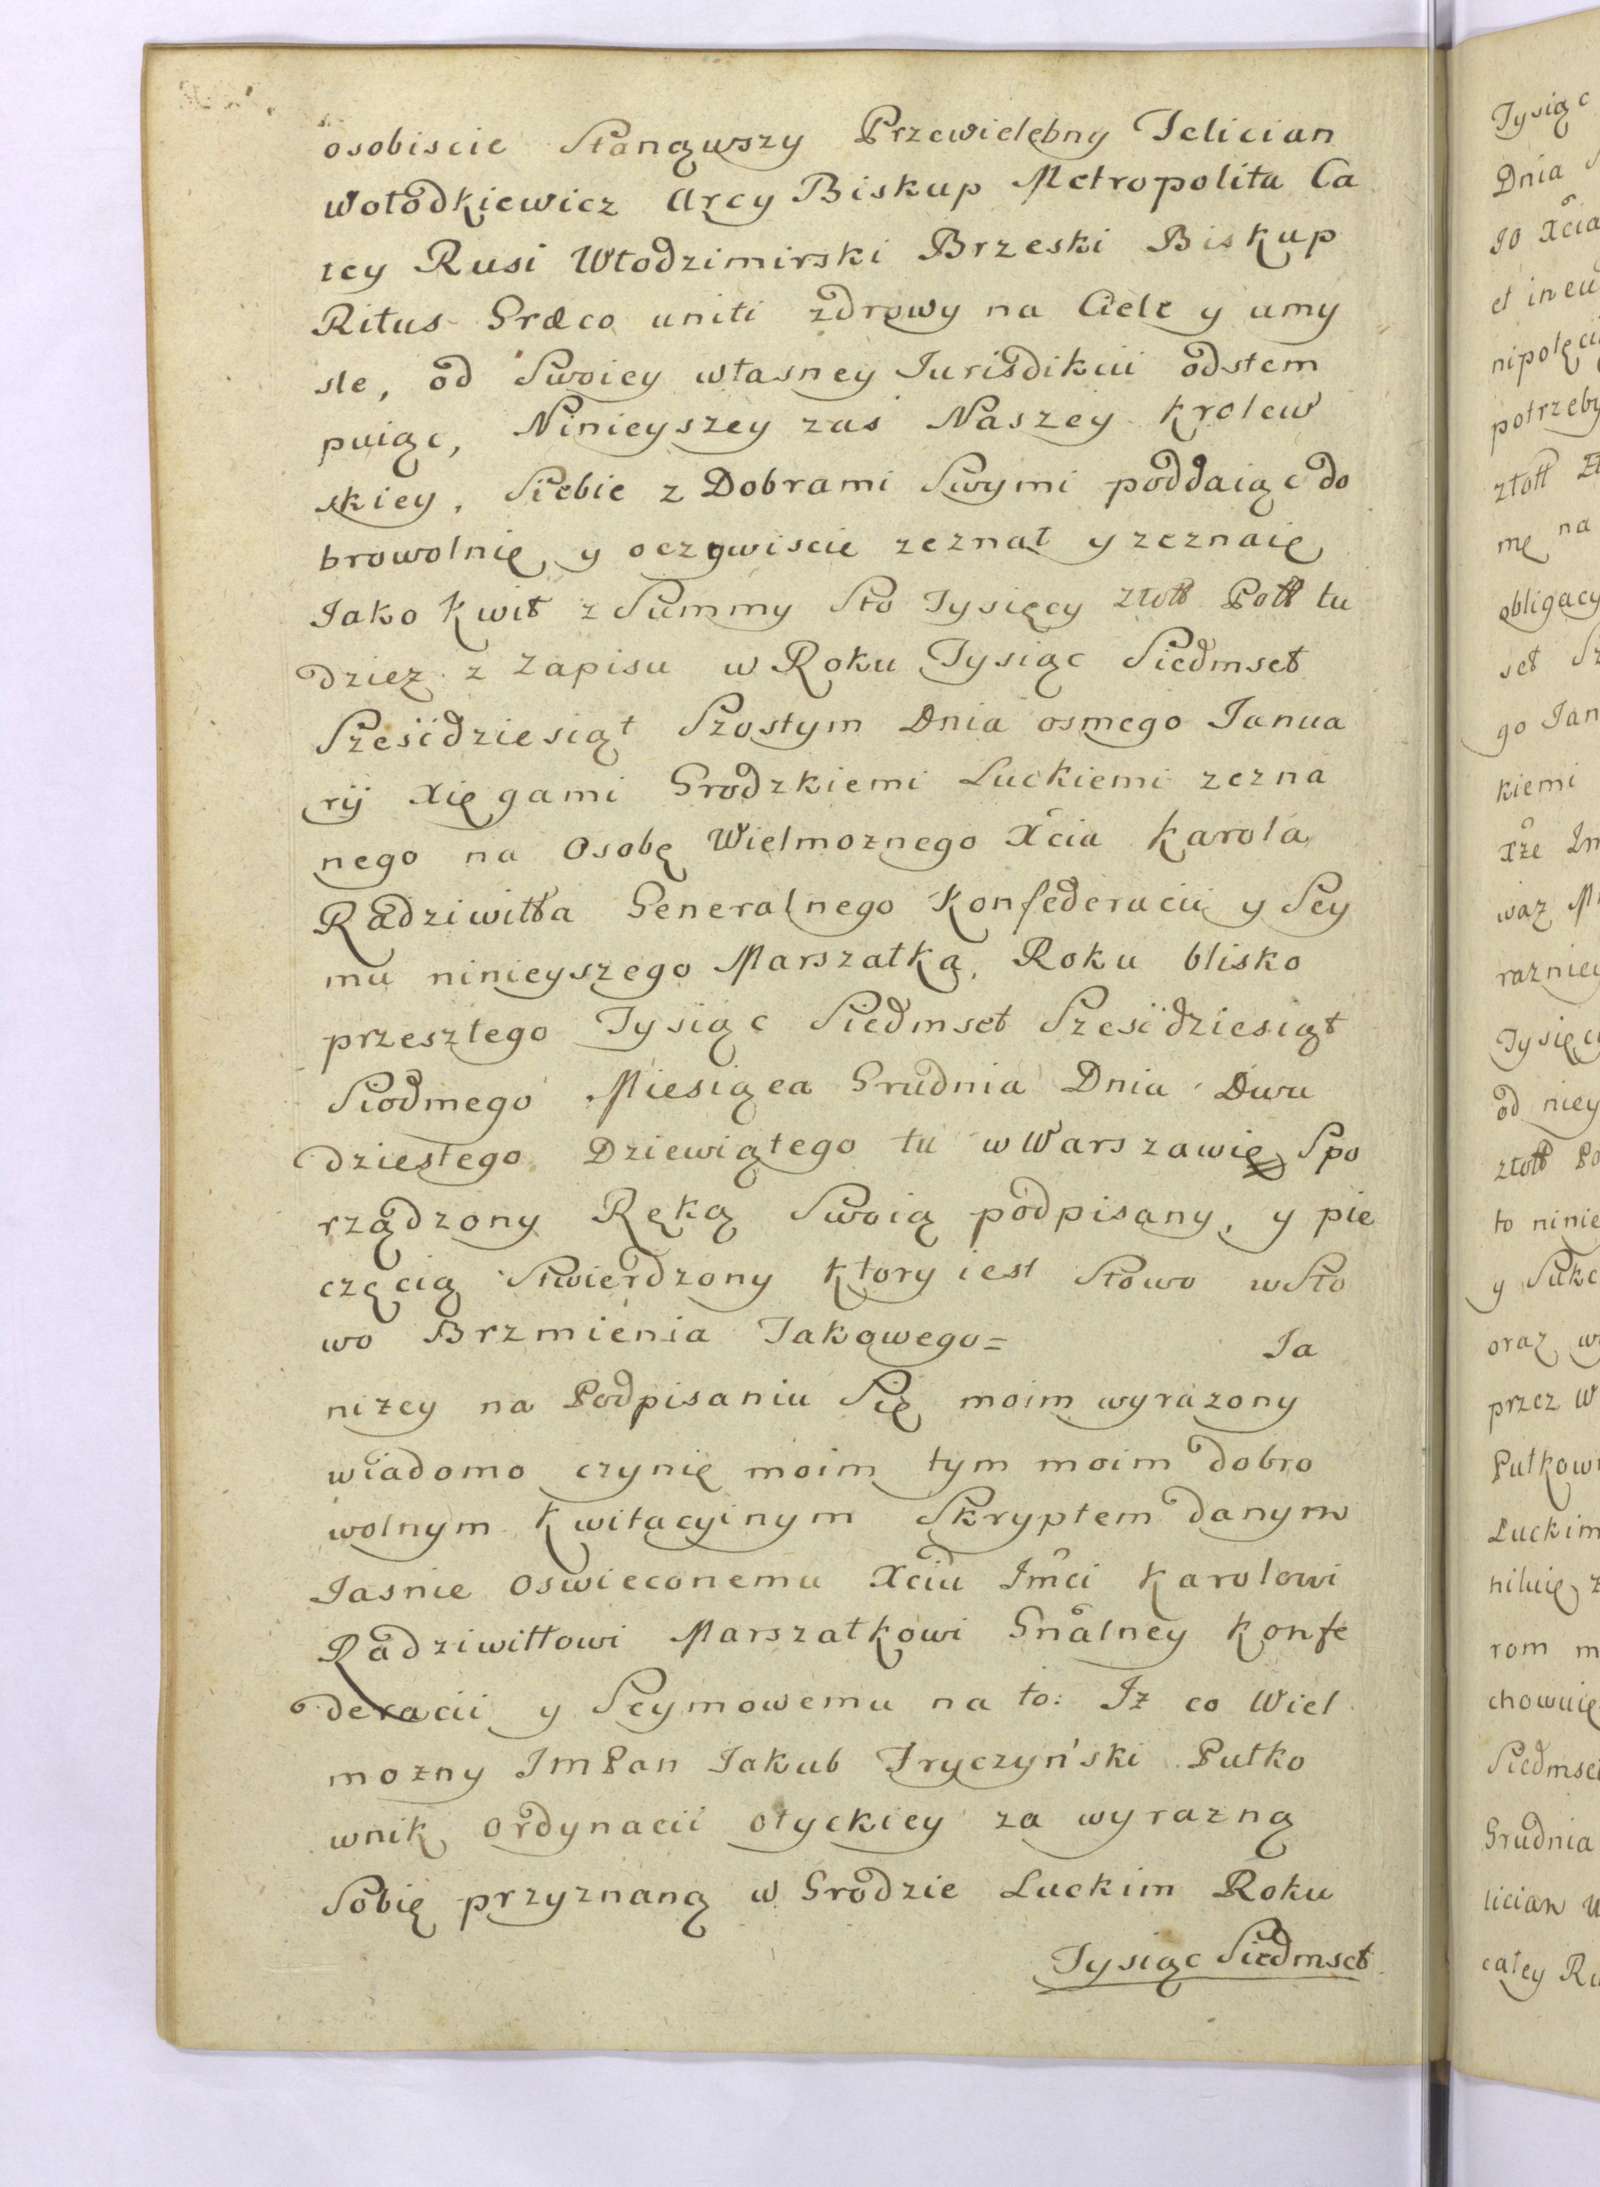 osobiscie Stanąwszy Przewielebny Felician
Wołodkiewicz Arcy Biskup Metropolita Ca
łey Rusi Włodzimirski Brzeski Biskup
Ritus Græco uniti zdrowy na Ciele y umy
sle, od Swoiey własney Iurisdikcii odstem
puiąc, Ninieyszey zas Naszey Krolew
skiey, Siebie z Dobrami Swymi poddaiąc do
browolnię y oczywiscie zeznał y zeznaię
Iako Kwit z Summy Sto Tysięcy złott Poll tu
dziez z Zapisu w Roku Tysiąc Siedmset
Szesidziesiąt Szostym Dnia osmego Ianua
rij Xięgami Grodzkiemi Luckiemi zezna
nego na Osobę Wielmoznego Xcia Karola
Radziwiłła Generalnego Konfederacii y Sey
mu ninieyszego Marszałka, Roku blisko
przeszłego Tysiąc Siedmset Szesidziesiąt
Siodmego Miesiąca Grudnia Dnia Dwu
dziestego Dziewiątego tu w Warszawię Spo
rządzony Ręką Swoią podpisany, y pie
częcią Stwierdzony Ktory iest Słowo w Sło
wo Brzmienia Takowego= Ia
niżey na Podpisaniu Się moim wyrazony
wiadomo czynię moim tym moim dobro
wolnym Kwitacyinym Skryptem danym
Iasnie Oswieconemu Xciu Imci Karolowi
Radziwiłłowi Marszałkowi Gnalney Konfe
deracii y Seymowemu na to: Iż co Wiel
mozny ImPan Iakub Fryczyński Pułko
wnik Ordynacii Ołyckiey za wyrazną
Sobię przyznaną w Grodzie Luckim Roku
Tysiąc Siedmset
Tysiąc
Dnia
IO Xcia
et in eu
potrzeby
złott
mę na
obligacy
set
go Ian
kiemi
Xże Im
waz
razniey
Tysięcy
od niey
złott Po
to ninie
y Sukc
oraz
przez W
Pułkow
Luckim
rom m
chowuię
Siedmset
Grudnia
lician W
całey Ru